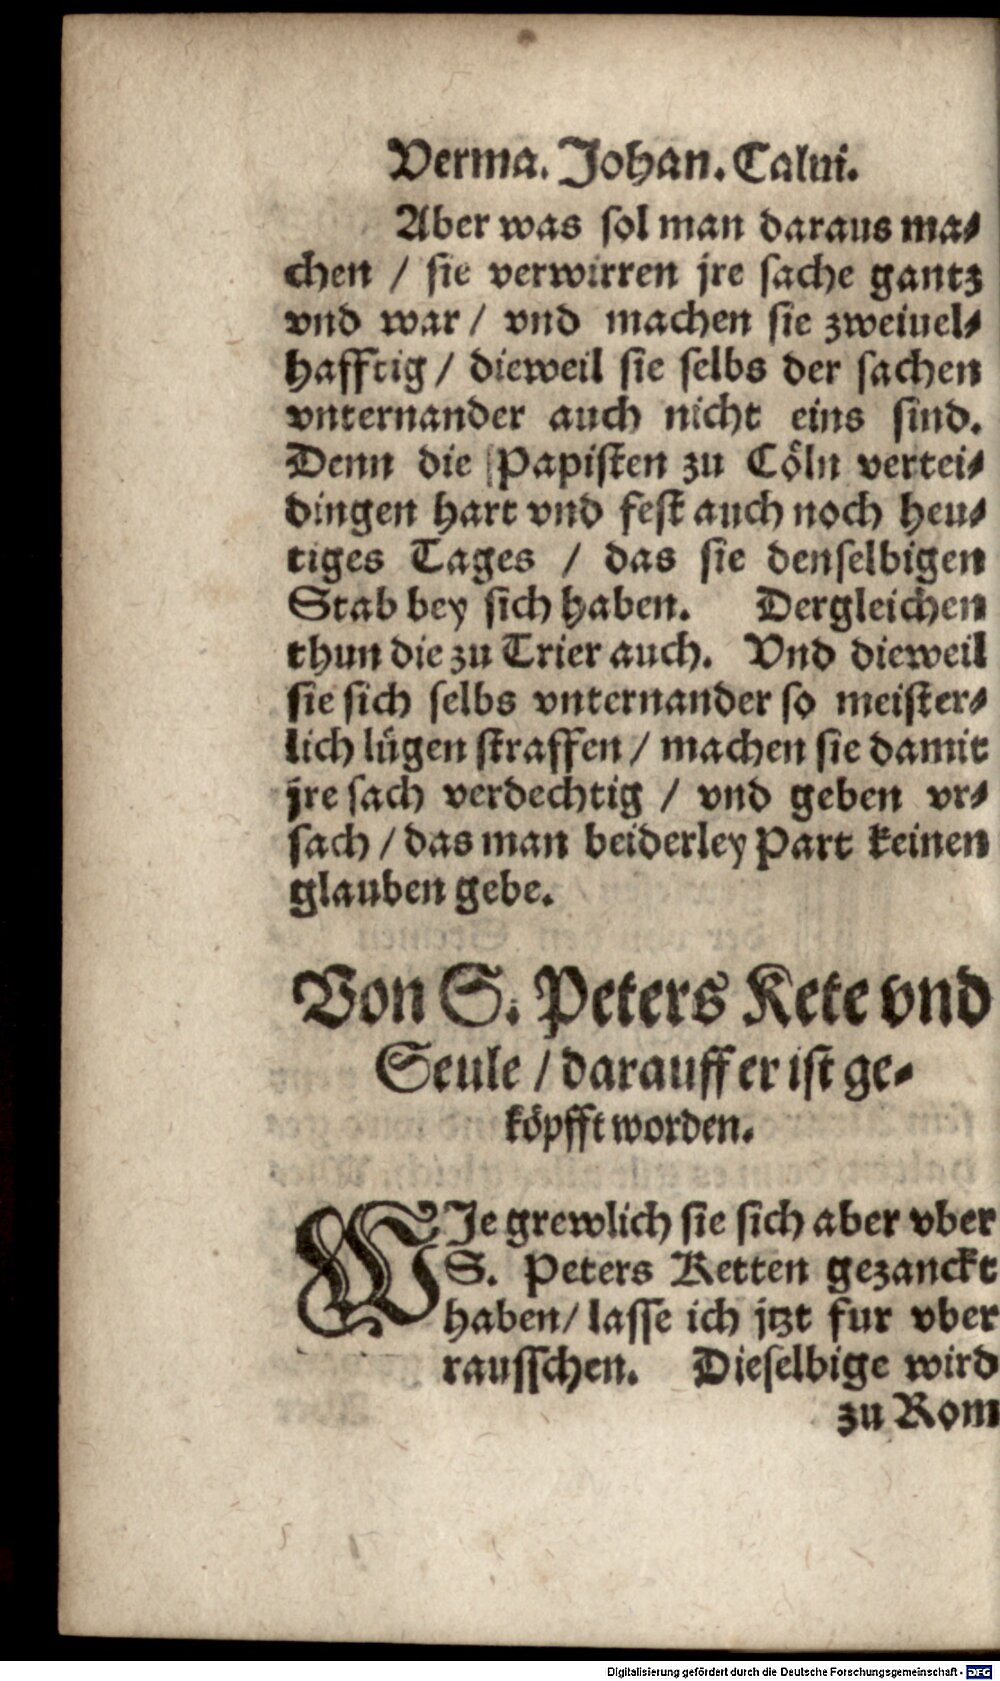 Verma. Johan. Calui.
Aber was sol man daraus ma⸗
chen / sie verwirren jre sache gantz
vnd war / vnd machen sie zweiuel⸗
hafftig / dieweil sie selbs der sachen
vnternander auch nicht eins sind.
Denn die Papisten zu Cöln vertei⸗
dingen hart vnd fest auch noch heu⸗
tiges Tages / das sie denselbigen
Stab bey sich haben. Dergleichen
thun die zu Trier auch. Vnd dieweil
sie sich selbs vnternander so meister⸗
lich lügen straffen / machen sie damit
jre sach verdechtig / vnd geben vr⸗
sach / das man beiderley Part keinen
glauben gebe.
Von S. Peters Kete vnd
Seule / darauff er ist ge⸗
köpfft worden.
WJe grewlich sie sich aber vber
S. Peters Ketten gezanckt
haben / lasse ich jtzt fur vber
rausschen. Dieselbige wird
zu Rom
Digitalisierung gefördert durch die Deutsche Forschungsgemeinschaft - DFG